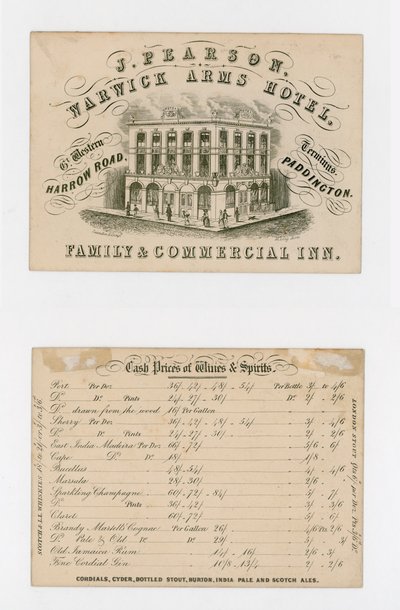 J. PEARSON,
WARWICK ARMS HOTEL,
Gt. Western Terminus,
HARROW ROAD. PADDINGTON.
FAMILY & COMMERCIAL INN.
Cash Prices of Wines & Spirits.
Port. Per Doz 36/. 42/. 48/. 54/ Per Bottle 3/ to 4/6
Do. Do. Pints 24/. 27/. 30/ Do. 2/. 2/6
Do. drawn from the wood 16/ Per Gallon
Sherry Per Doz 36/. 42/. 48/. 54/ 3/. 4/6
Do. Do. Pints 24/. 27/. 30/ 2/. 2/6
East India Madeira Per Doz 66/. 72/ 5/6. 6/
Cape Do. Do. 18/ 1/8.
Bucellas 48/. 54/ 4/. 4/6
Marsala 28/. 30/ 2/6
Sparkling Champagne 60/. 72/. 84/ 5/. 7/
Do. Pints 36/. 42/ 3/. 3/6
Claret 60/. 72/ 5/. 6/
Brandy Martell's Cognac Per Gallon 26/ 4/6
Do. Pale & Old Do. Do. 29/ 5/. 3/
Old Jamaica Rum 14/. 16/ 2/6. 3/
Fine Cordial Gin 10/8. 13/4 2/. 2/6
SCOTCH & I.I. WHISKIES
LONDON STOUT
CORDIALS, CYDER, BOTTLED STOUT, BURTON, INDIA PALE AND SCOTCH ALES.